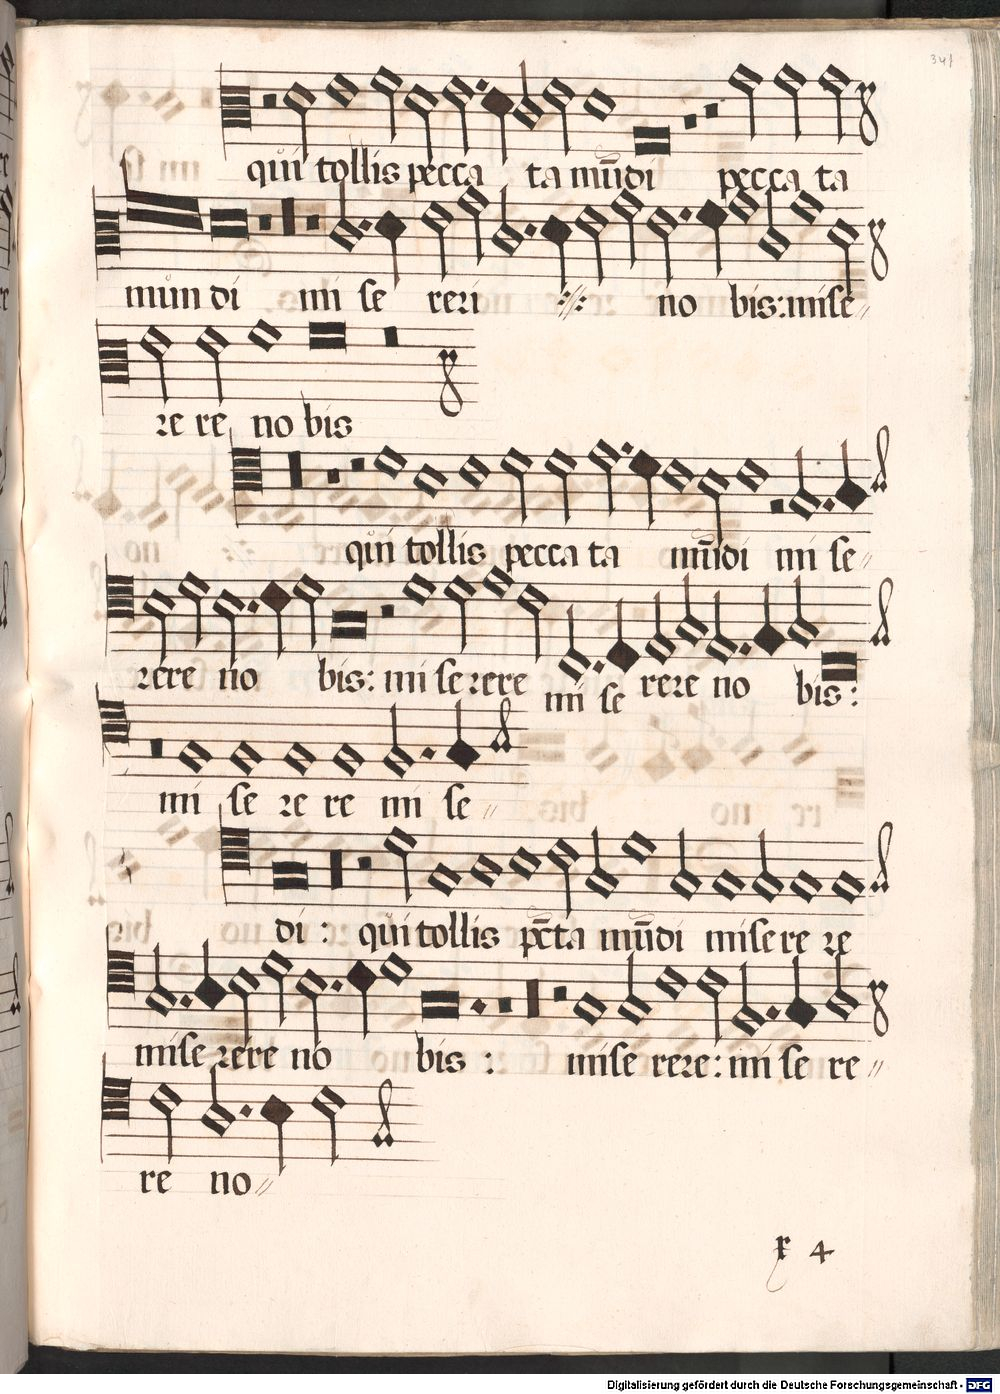 341
qui tollis pecca ta mūdi pecca ta
mun di mi se reri :||: no bis: mise //
re re no bis
qui tollis pecca ta mūdi mi se //
rere no bis: mi se rere mi se rere no bis:
mi se re re mi se //
di: qui tollis pc̄ta mūdi mise re re
mise rere no bis: mise rere: mi se re //
re no //
r 4
Digitalisierung gefördert durch die Deutsche Forschungsgemeinschaft - DFG